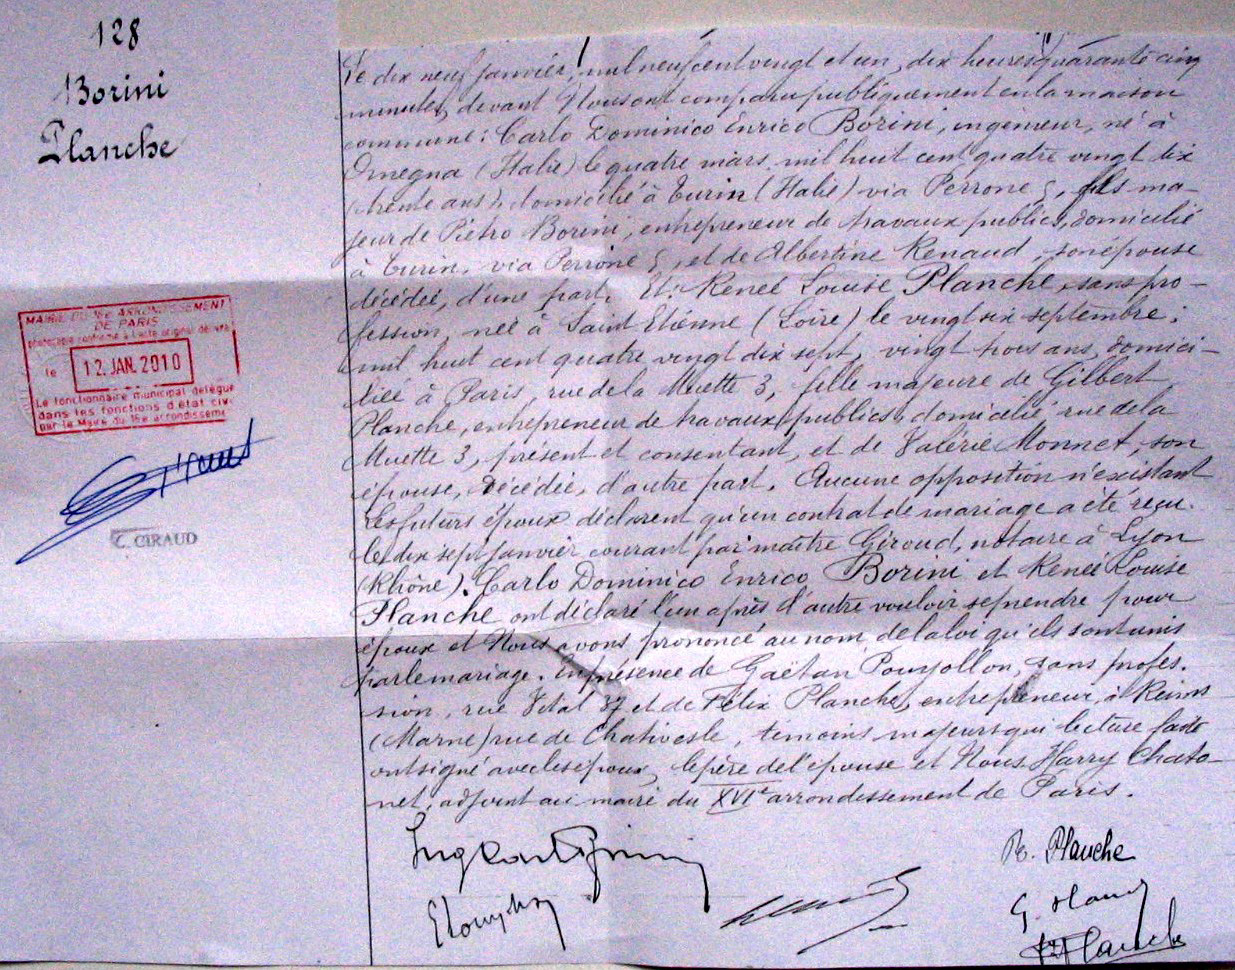 128
Borini
Planche
Le dix neuf janvier, mil neuf cent vingt et un, dix heures quarante cinq
minutes, devant Nous ont comparu publiquement en la maison
commune : Carlo Dominico Enrico Borini, ingénieur, né à
Omegna (Italie) le quatre mars mil huit cent quatre vingt dix
(trente ans), domicilié à Turin (Italie) via Perrone 5, fils ma-
jeur de Pietro Borini, entrepreneur de travaux publics, domicilié
à Turin, via Perrone 5, et de Albertine Renaud, son épouse
décédée, d'une part. Et : Renée Louise Planche, sans pro-
fession, née à Saint Etienne (Loire) le vingt six septembre
mil huit cent quatre vingt dix sept, vingt trois ans, domici-
liée à Paris, rue de la Muette 3, fille majeure de Gilbert
Planche, entrepreneur de travaux publics, domicilié rue de la
Muette 3, présent et consentant, et de Valérie Monnet, son
épouse, décédée, d'autre part. Aucune opposition n'existant
Les futurs époux déclarent qu'un contrat de mariage a été reçu
le dix sept janvier courant par maître Giroud, notaire à Lyon
(Rhône). Carlo Dominico Enrico Borini et Renée Louise
Planche ont déclaré l'un après l'autre vouloir se prendre pour
époux et Nous avons prononcé au nom de la loi qu'ils sont unis
par le mariage. En présence de Gaëtan Poujollon, sans profes-
sion, rue Vital 37 et de Félix Planche, entrepreneur, à Reims
(Marne) rue de Chativesle, témoins majeurs qui lecture faite
ont signé avec les époux, le père de l'épouse et Nous Harry Chato-
net, adjoint au maire du XVIe arrondissement de Paris.
MAIRIE DU 16e ARRONDISSEMENT
DE PARIS
photocopie conforme à l'acte original délivré
le 12 JAN. 2010
Le fonctionnaire municipal délégué
dans les fonctions d'état civil
par le Maire du 16e arrondissement
C. GIRAUD
R. Planche